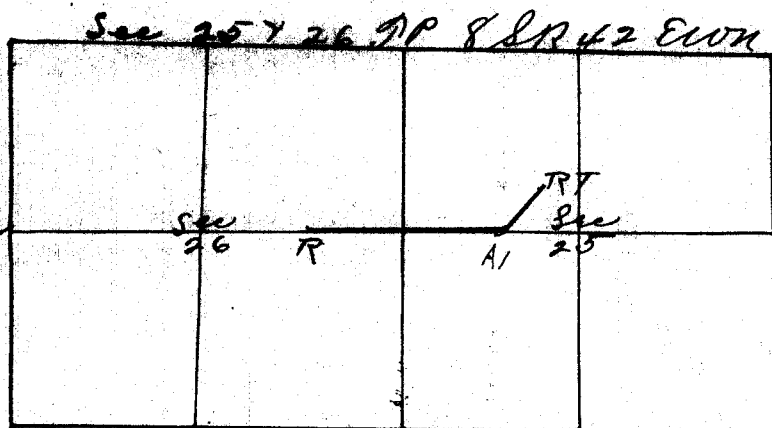 Sec 25 & 26 TP 8 S R 42 EWM
RT
Sec
26
R
A1
Sec
25